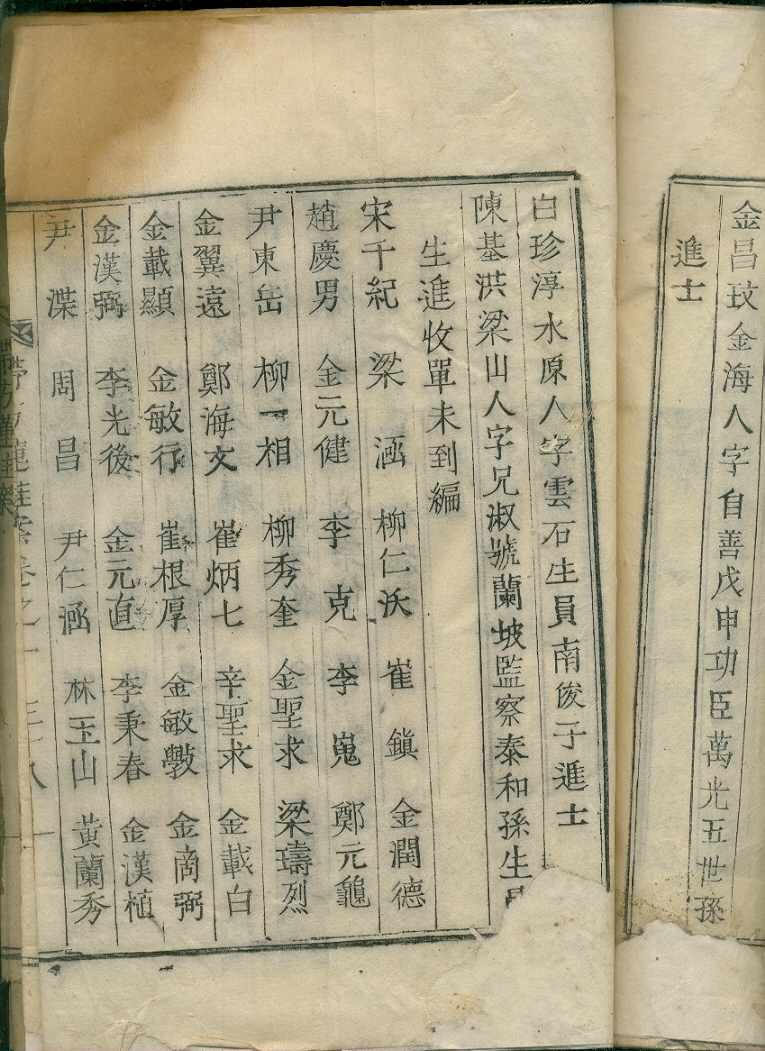 金昌玟金海人字自善戊申功臣萬光五世孫
進士
白珍淳水原人字雲石生員南俊子進士
陳基洪梁山人字兄淑號蘭坡監察泰和孫生
生進收單未到編
宋千紀 梁涵 柳仁沃 崔鎭 金潤德
趙慶男 金元健 李克 李嵬 鄭元龜
尹東岳 柳一相 柳秀奎 金聖求 梁壔烈
金翼遠 鄭海文 崔炳七 辛聖求 金載白
金載顯 金敏行 崔根厚 金敏斅 金商弼
金漢弼 李光後 金元直 李秉春 金漢植
尹渫 周昌 尹仁涵 林玉山 黃蘭秀
帶方 卷之一 三十八